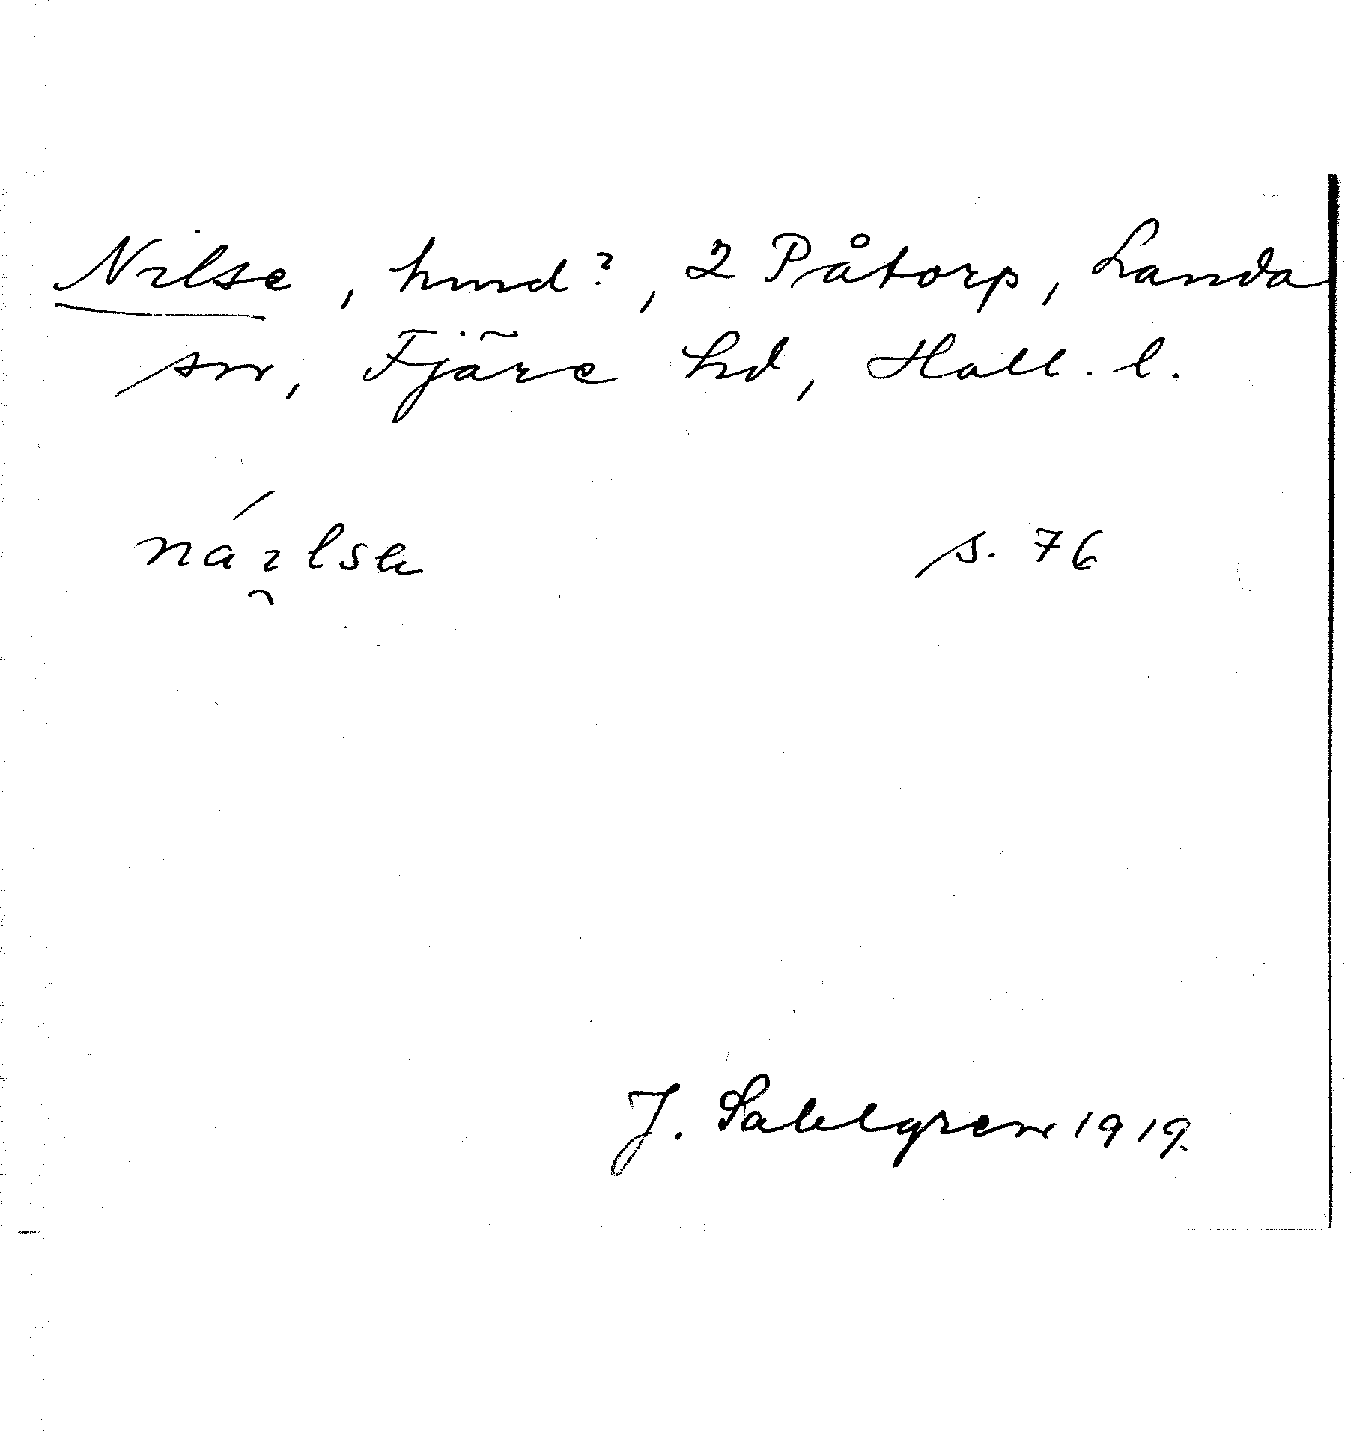 Nilse, hmd?, 2 Påtorp, Landa
sn, Fjäre hd, Hall. l.
náı̯lsa s. 76
J. Sahlgren 1919.